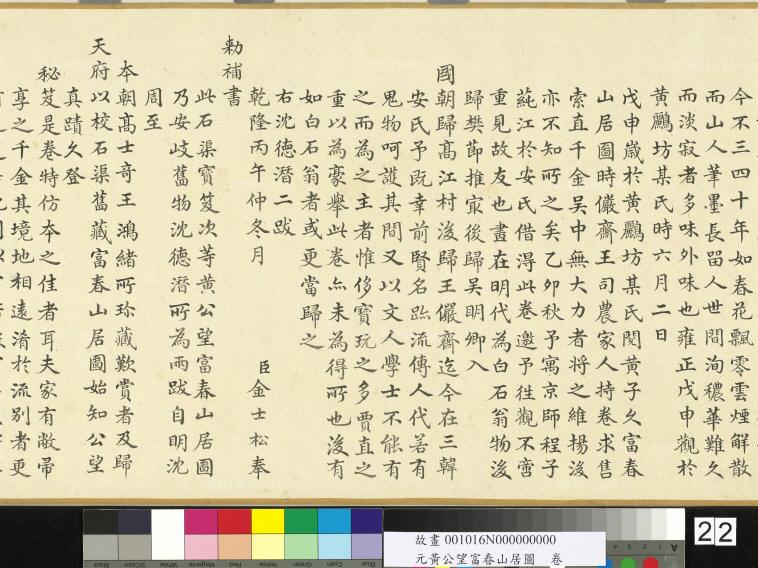 今不三四十年如春花飄零雲煙解散
而山人筆墨長留人世間洵穠華難久
而淡寂者多味外味也雍正戊申觀於
黃鸝坊某氏時六月二日
戊申歲於黃鸝坊某氏閱黃子久富春
山居圖時儼齋王司農家人持卷求售
索直千金吳中無大力者將之維揚後
亦不知所之矣乙卯秋予寓京師程子
蒓江於安氏借得此卷邀予往觀不啻
重見故友也畫在明代為白石翁物後
歸樊節推寂後歸吳明卿入
國朝歸高江村後歸王儼齋迄今在三韓
安氏予既幸前賢名跡流傳人代若有
鬼物呵護其間又以文人學士不能有
之而為之主者惟侈寶玩之多賈直之
重以為豪舉此卷亦未為得所也後有
如白石翁者或更當歸之
右沈德潛二跋
乾隆丙午仲冬月　　　臣金士松奉
勅補書
此石渠寶笈次等黃公望富春山居圖
乃安岐舊物沈德潛所為兩跋自明沈
周至
本朝高士奇王鴻緒所珍藏歎賞者及歸
天府以校石渠舊藏富春山居圖始知公望
真蹟久登
秘笈是卷特仿本之佳者耳夫家有敝帚
享之千金其境地相遠淆於流別者更
Blue
Cyan
Green
Yellow
Red
Magenta
White
3/Color
Black
故畫 001016N000000000
元黃公望富春山居圖　卷
A
22